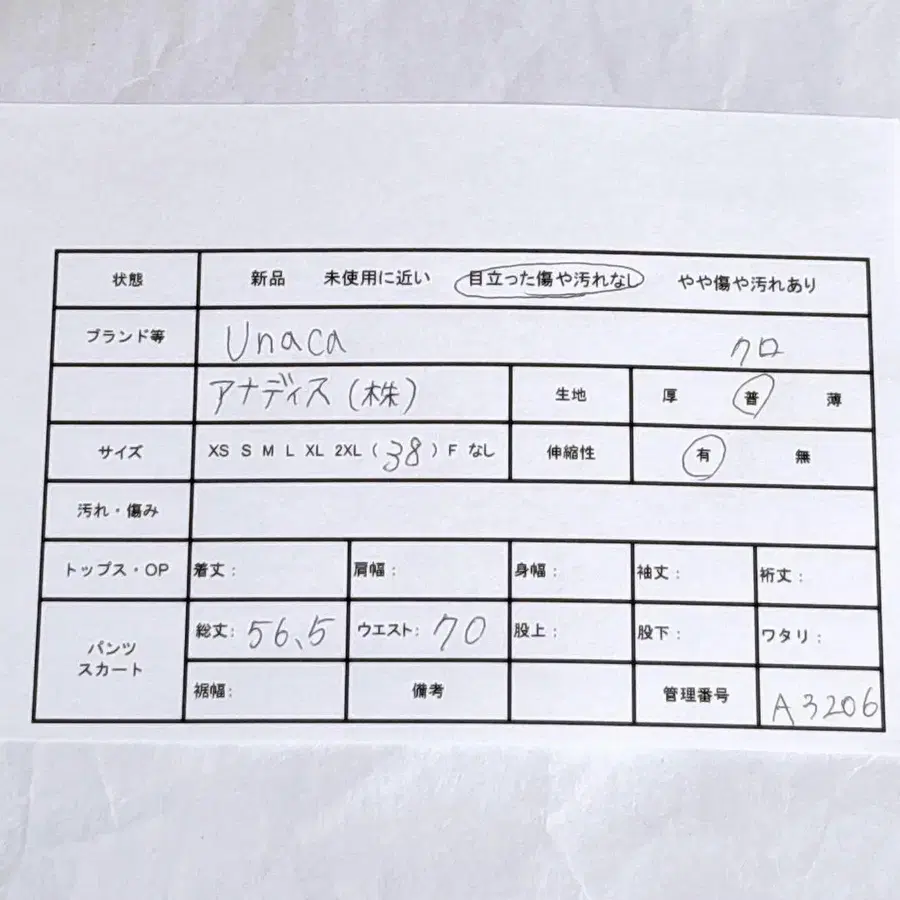 状態 新品 未使用に近い 目立った傷や汚れなし やや傷や汚れあり
ブランド等 Unaca クロ
アナディス(株) 生地 厚 普 薄
サイズ XS S M L XL 2XL (38) F なし 伸縮性 有 無
汚れ・傷み
トップス・OP 着丈: 肩幅: 身幅: 袖丈: 裄丈:
パンツ スカート 総丈: 56.5 ウエスト: 70 股上: 股下: ワタリ:
裾幅: 備考 管理番号 A3206